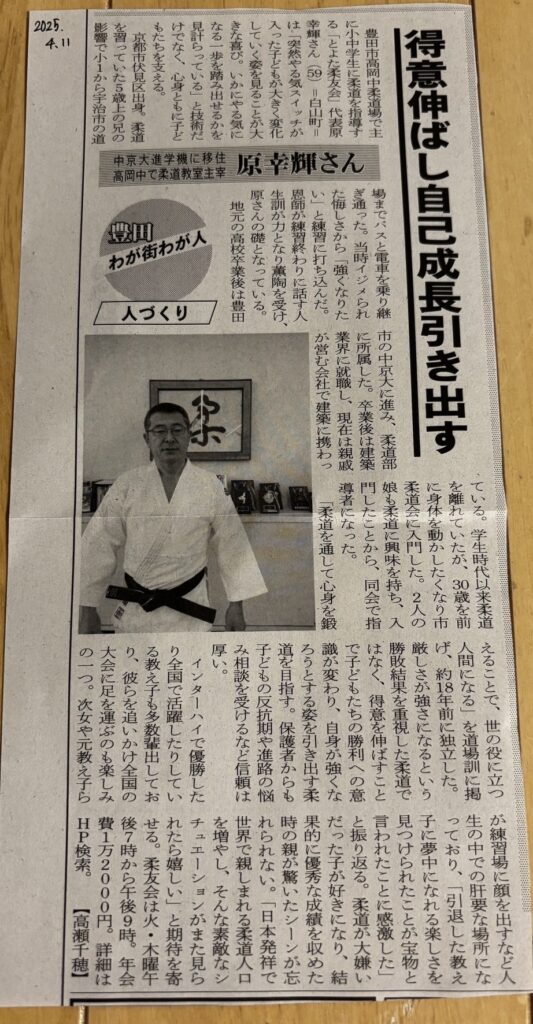 2025.
4.11
得意伸ばし自己成長引き出す
豊田市高岡中柔道場で主
に小中学生に柔道を指導す
る「とよた柔友会」代表原
幸輝さん(59)=白山町=
は「突然やる気スイッチが
入った子どもが大きく変化
していく姿を見ることが大
きな喜び。いかにやる気に
なる一歩を踏み出せるかを
見計らっている」と技術だ
けでなく、心身ともに子ど
もたちを支える。
京都市伏見区出身。柔道
を習っていた5歳上の兄の
影響で小1から宇治市の道
中京大進学機に移住
高岡中で柔道教室主宰
原幸輝さん
豊田
わが街わが人
人づくり
場までバスと電車を乗り継
ぎ通った。当時イジメられ
た悔しさから「強くなりた
い」と練習に打ち込んだ。
恩師が練習終わりに話す人
生訓が力となり薫陶を受け、
原さんの礎となっている。
地元の高校卒業後は豊田
市の中京大に進み、柔道部
に所属した。卒業後は建築
業界に就職し、現在は親戚
が営む会社で建築に携わっ
ている。学生時代以来柔道
を離れていたが、30歳を前
に身体を動かしたくなり市
柔道会に入門した。2人の
娘も柔道に興味を持ち、入
門したことから、同会で指
導者になった。
「柔道を通して心身を鍛
えることで、世の役に立つ
人間になる」を道場訓に掲
げ、約18年前に独立した。
厳しさが強さになるという
勝敗結果を重視した柔道で
はなく、得意を伸ばすこと
で子どもたちの勝利への意
識が変わり、自身が強くな
ろうとする姿を引き出す柔
道を目指す。保護者からも
子どもの反抗期や進路の悩
み相談を受けるなど信頼は
厚い。
インターハイで優勝した
り全国で活躍したりしてい
る教え子も多数輩出してお
り、彼らを追いかけ全国の
大会に足を運ぶのも楽しみ
の一つ。次女や元教え子ら
が練習場に顔を出すなど人
生の中での肝要な場所にな
っており、「引退した教え
子に夢中になれる楽しさを
見つけられたことが宝物と
言われたことに感激した」
と振り返る。柔道が大嫌い
だった子が好きになり、結
果的に優秀な成績を収めた
時の親が驚いたシーンが忘
れられない。「日本発祥で
世界で親しまれる柔道人口
を増やし、そんな素敵なシ
チュエーションがまた見ら
れたら嬉しい」と期待を寄
せる。柔友会は火・木曜午
後7時から午後9時。年会
費1万2000円。詳細は
HP検索。 【高瀬千穂】
柔